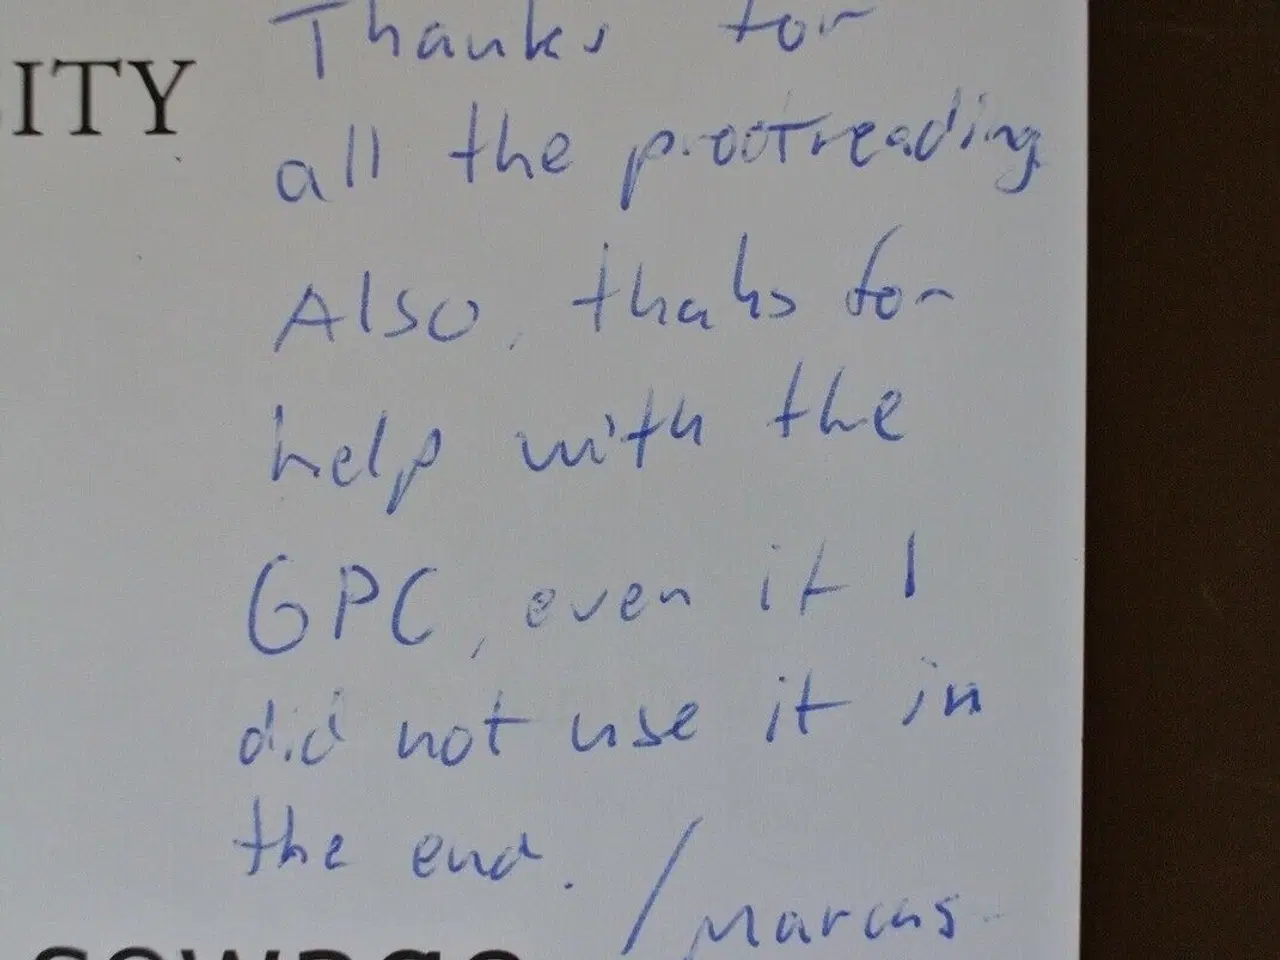 Thanks for
ITY
all the proofreading
Also, thaks for
help with the
GPC, even if I
did not use it in
the end. /Marcus
sewage